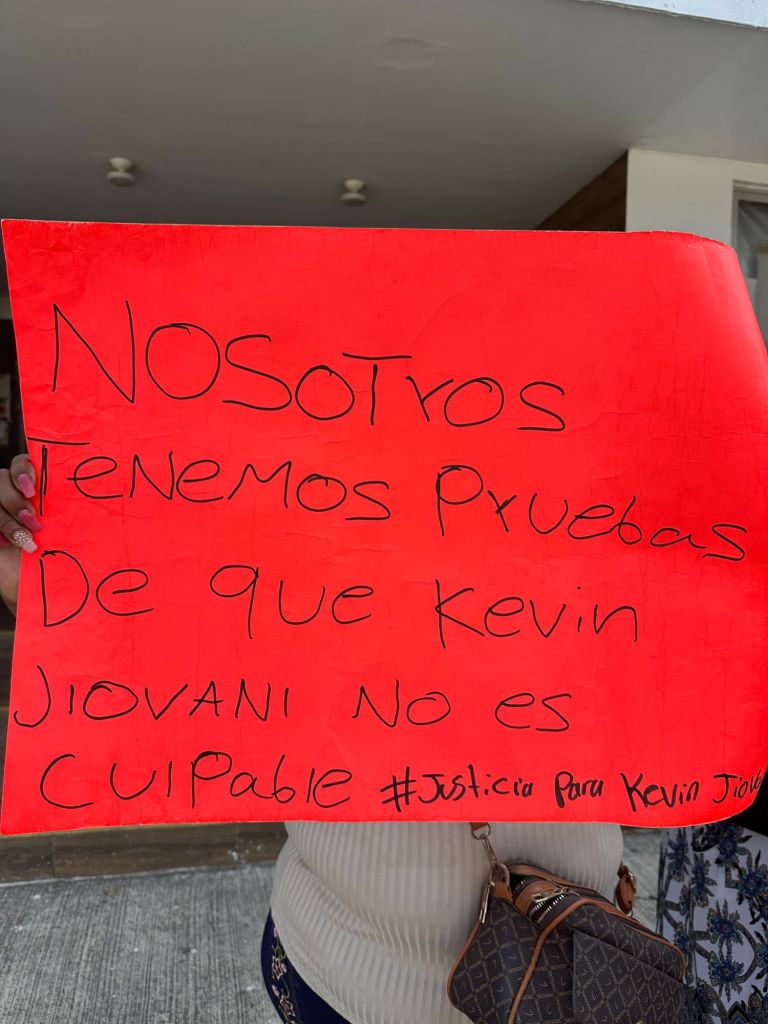 NOSOTrOS
TeNEMOS PrUebas
De que Kevin
JIOVANI NO es
CulPable #Justicia Para Kevin